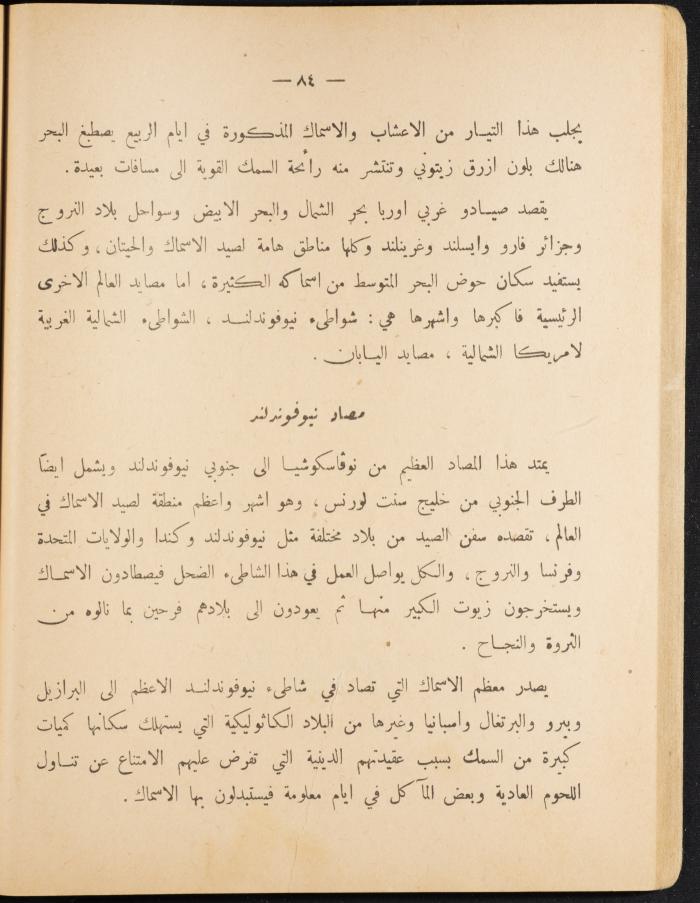 — ٨٤ —
يجلب هذا التيار من الاعشاب والاسماك المذكورة في ايام الربيع يصطبغ البحر
هنالك بلون ازرق زيتوني وتنتشر منه رائحة السمك القوية الى مسافات بعيدة .
يقصد صيادو غربي اوربا بحر الشمال والبحر الابيض وسواحل بلاد النروج
وجزائر فارو وايسلند وغرينلند وكلها مناطق هامة لصيد الاسماك والحيتان ، وكذلك
يستفيد سكان حوض البحر المتوسط من اسماكه الكثيرة ، اما مصايد العالم الاخرى
الرئيسية فاكبرها واشهرها هي : شواطىء نيوفوندلند ، الشواطىء الشمالية الغربية
لامريكا الشمالية ، مصايد اليابان .
مصاد نيوفوندلند
يمتد هذا المصاد العظيم من نوڤاسكوشيا الى جنوبي نيوفوندلند ويشمل ايضاً
الطرف الجنوبي من خليج سنت لورنس ، وهو اشهر واعظم منطقة لصيد الاسماك في
العالم ، تقصده سفن الصيد من بلاد مختلفة مثل نيوفوندلند وكندا والولايات المتحدة
وفرنسا والنروج ، والكل يواصل العمل في هذا الشاطىء الضحل فيصطادون الاسماك
ويستخرجون زيوت الكبير منها ثم يعودون الى بلادهم فرحين بما نالوه من
الثروة والنجاح .
يصدر معظم الاسماك التي تصاد في شاطىء نيوفوندلند الاعظم الى البرازيل
وبيرو والبرتغال واسبانيا وغيرها من البلاد الكاثوليكية التي يستهلك سكانها كميات
كبيرة من السمك بسبب عقيدتهم الدينية التي تفرض عليهم الامتناع عن تناول
اللحوم العادية وبعض المآكل في ايام معلومة فيستبدلون بها الاسماك .